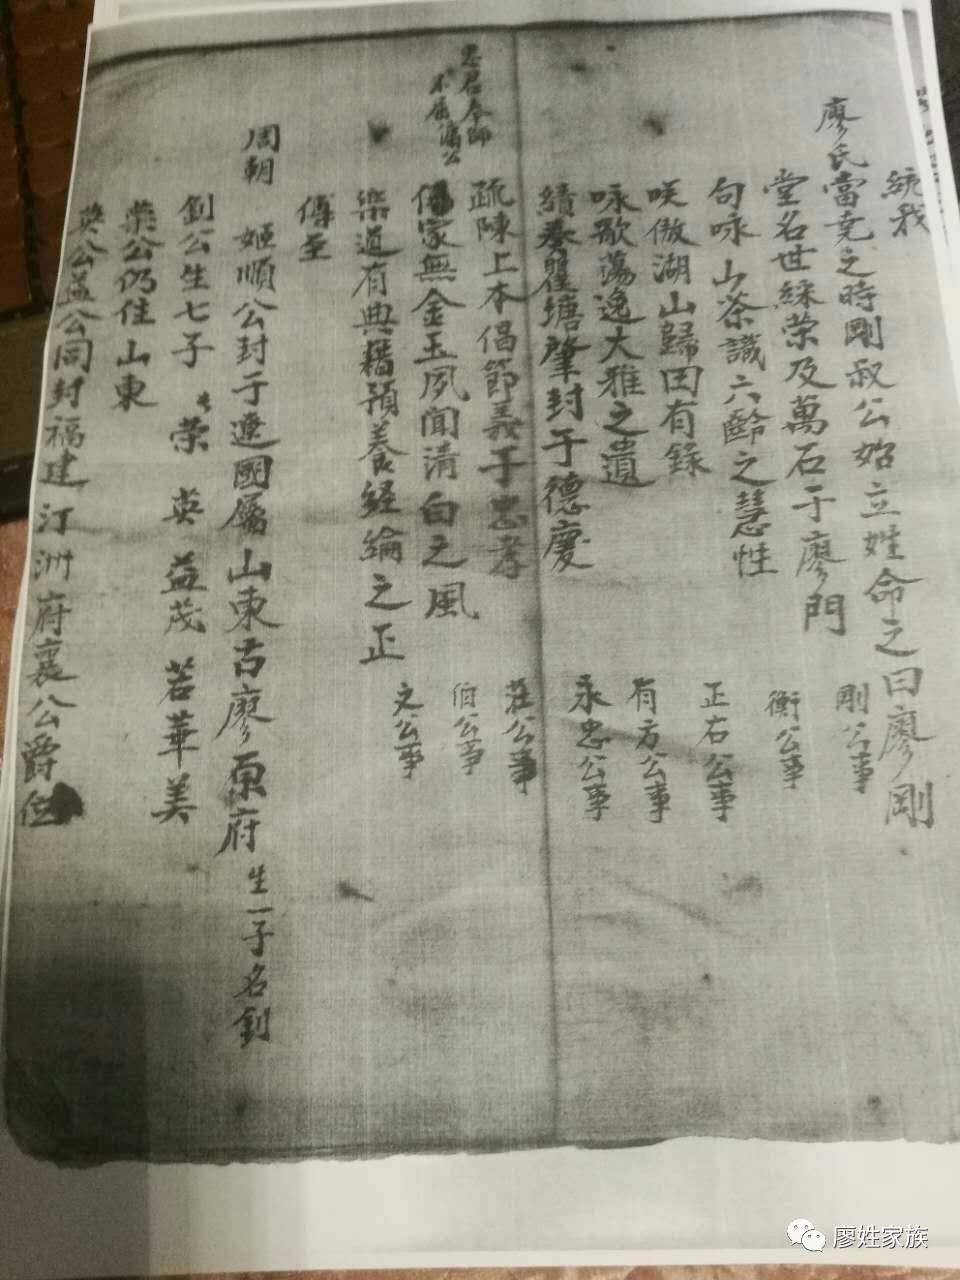 統我
廖氏當堯之時剛叔公始立姓命之曰廖剛
剛公事
堂名世綵榮及萬石于廖門
衡公事
句咏山茶識六齡之慧性
正右公事
咲傲湖山歸田有錄
有方公事
咏歌蕩逸大雅之遺
永忠公事
績奏瞿塘肇封于德慶
莊公事
疏陳上本倡節義于忠孝
伯公事
家無金玉夙聞清白之風
文公事
樂道有典籍預養経綸之正
傳至
周朝
姬順公封于遼國屬山東古廖原府生一子名釗
釗公生七子 榮 英 益 茂 若 華 美
榮公仍住山東
英公益公同封福建汀洲府襄公爵位
廖姓家族